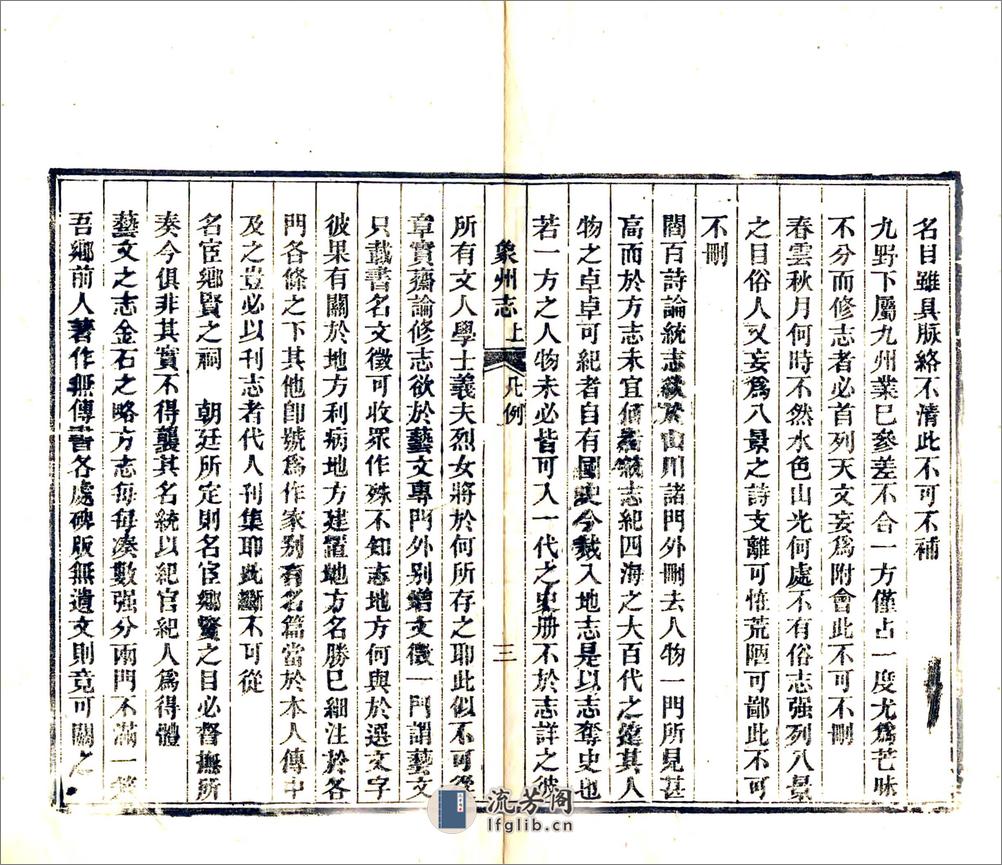 名目雖具脉絡不清此不可不補
九野下屬九州業已參差不合一方僅占一度尤爲芒昧
不分而修志者必首列天文妄爲附會此不可不刪
春雲秋月何時不然水色山光何處不有俗志强列八景
之目俗人又妄爲八景之詩支離可怪荒陋可鄙此不可
不刪
閻百詩論統志欲於山川諸門外刪去人物一門所見甚
高而於方志未宜統志紀四海之大百代之遠其人
物之卓卓可紀者自有國史今載入地志是以志奪史也
若一方之人物未必皆可入一代之史册不於志詳之彼
象州志 上 凡例 三
所有文人學士義夫烈女將於何所存之耶此似不可從
章實齋論修志欲於藝文專門外别增文徵一門謂藝文
只載書名文徵可收眾作殊不知志地方何與於選文字
彼果有關於地方利病地方建置地方名勝已細注於各
門各條之下其他卽號爲作家别有名篇當於本人傳中
及之豈必以刊志者代人刊集耶此斷不可從
名宦鄉賢之祠 朝廷所定則名宦鄉賢之目必督撫所
奏今俱非其實不得襲其名統以紀官紀人爲得體
藝文之志金石之略方志每每湊數强分兩門不滿一
吾鄉前人著作無傳書各處碑版無遺文則竟可闕之
流芳閣
lfglib.cn